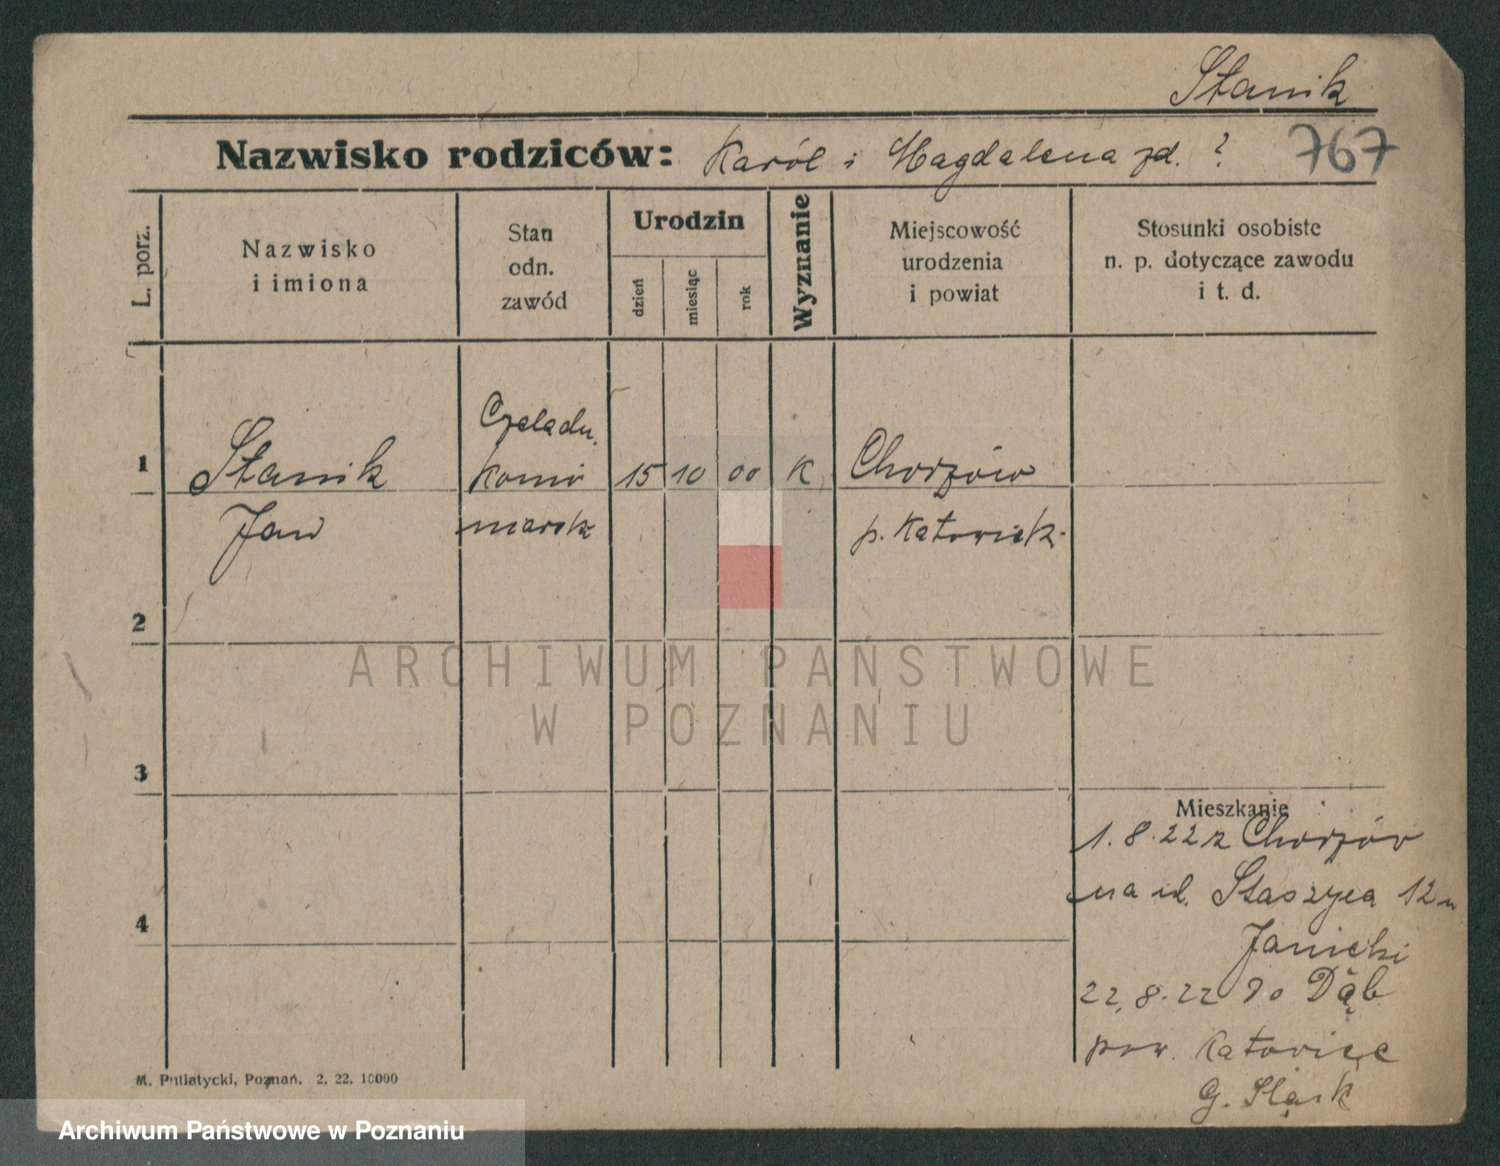 Stanik
Nazwisko rodziców: Karól i Magdalena zd. ?
767
L. porz.
Nazwisko
i imiona
Stan
odn.
zawód
Urodzin
dzień
miesiąc
rok
Wyznanie
Miejscowość
urodzenia
i powiat
Stosunki osobiste
n. p. dotyczące zawodu
i t. d.
1
Stanik
Jan
Czeladn.
komi
marsk
15 10 00 K
Chorzów
p. Katowick.
2
3
4
Mieszkanie
1.8.22 z Chorzów
na ul. Staszyca 12
Janicki
22.8.22 do Dąb
pow. Katowice
G. Śląsk
M. Putiatycki, Poznań. 2. 22. 10000
ARCHIWUM PAŃSTWOWE
W POZNANIU
Archiwum Państwowe w Poznaniu